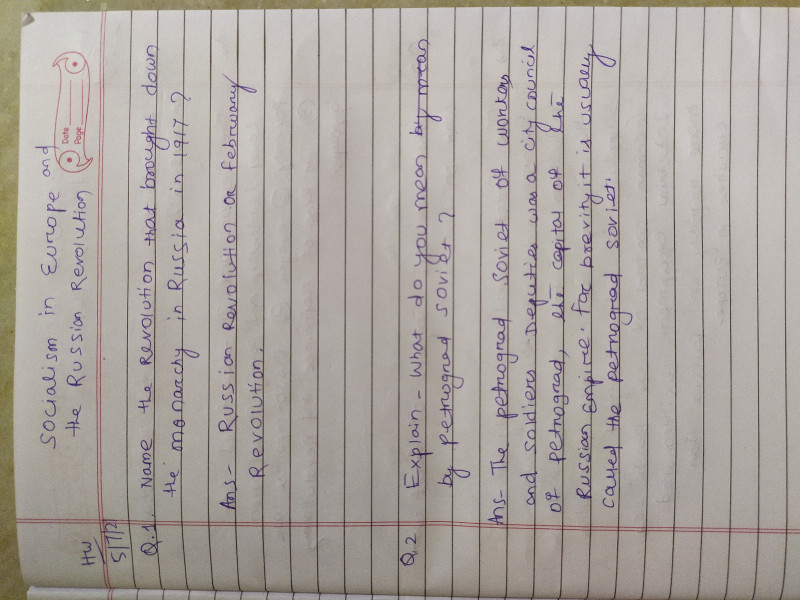 Socialism in Europe and
the Russian Revolution
Date
Page
HW
5/7/2
Q.1. Name the Revolution that brought down
the monarchy in Russia in 1917 ?
Ans- Russian Revolution or February
Revolution.
Q.2 Explain - What do you mean by mean
by petrograd soviet ?
Ans- The petrograd soviet of workers
and soldiers Deputies was a city council
of petrograd, the capital of the
Russian Empire. For brevity it is usually
called the petrograd soviet.